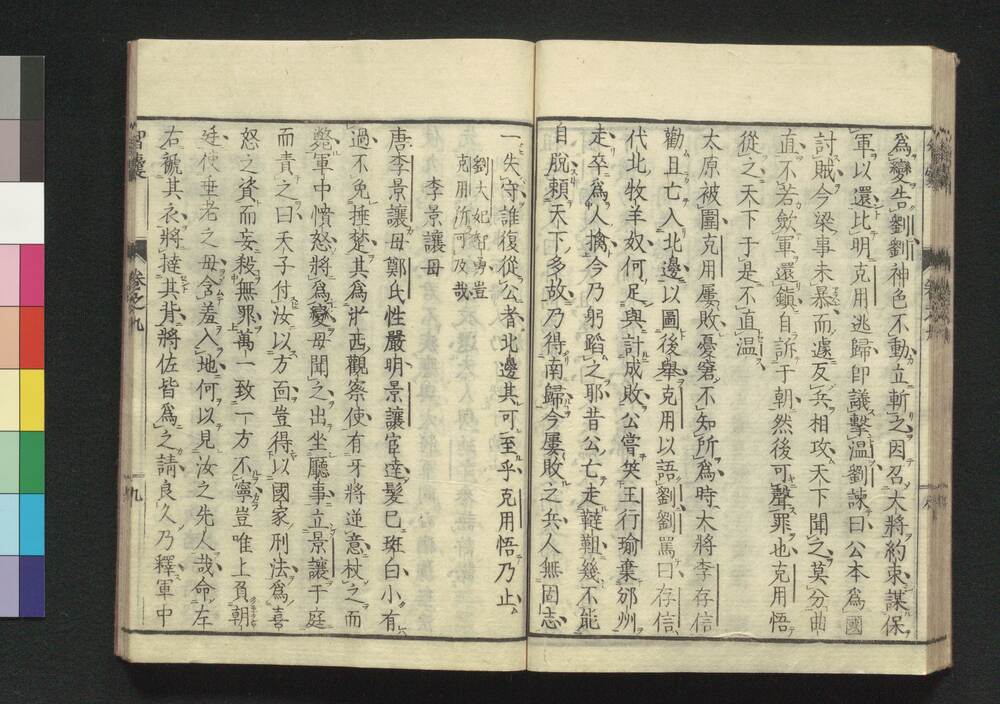 爲變告劉劉神色不動立斬之因召大將約束謀保
軍以還比明克用逃歸卽議擊溫劉諫曰公本爲國
討賊今梁事未暴而遽反兵相攻天下聞之莫分曲
直不若歛軍還鎭自訴于朝然後可聲罪也克用悟
從之天下于是不直溫
太原被圍克用屢敗憂窘不知所爲時大將李存信
勸且亡入北邊以圖後舉克用以語劉劉罵曰存信
代北牧羊奴何足與計成敗公嘗笑王行瑜棄邠州
走卒爲人擒今乃躬蹈之耶昔公亡走韃靼幾不能
自脫賴天下多故乃得南歸今屢敗之兵人無固志
一失守誰復從公者北邊其可至乎克用悟乃止
劉太妃智勇豈
克用所可及哉
李景讓母
唐李景讓母鄭氏性嚴明景讓宦達髮已斑白小有
過不免捶楚其爲浙西觀察使有牙將逆意杖之而
斃軍中憤怒將爲變母聞之出坐廳事立景讓于庭
而責之曰天子付汝以方面豈得以國家刑法爲喜
怒之資而妄殺無罪萬一致一方不寧豈唯上負朝
廷使垂老之母含羞入地何以見汝之先人哉命左
右褫其衣將撻其背將佐皆爲之請良久乃釋軍中
智囊
卷之九
九